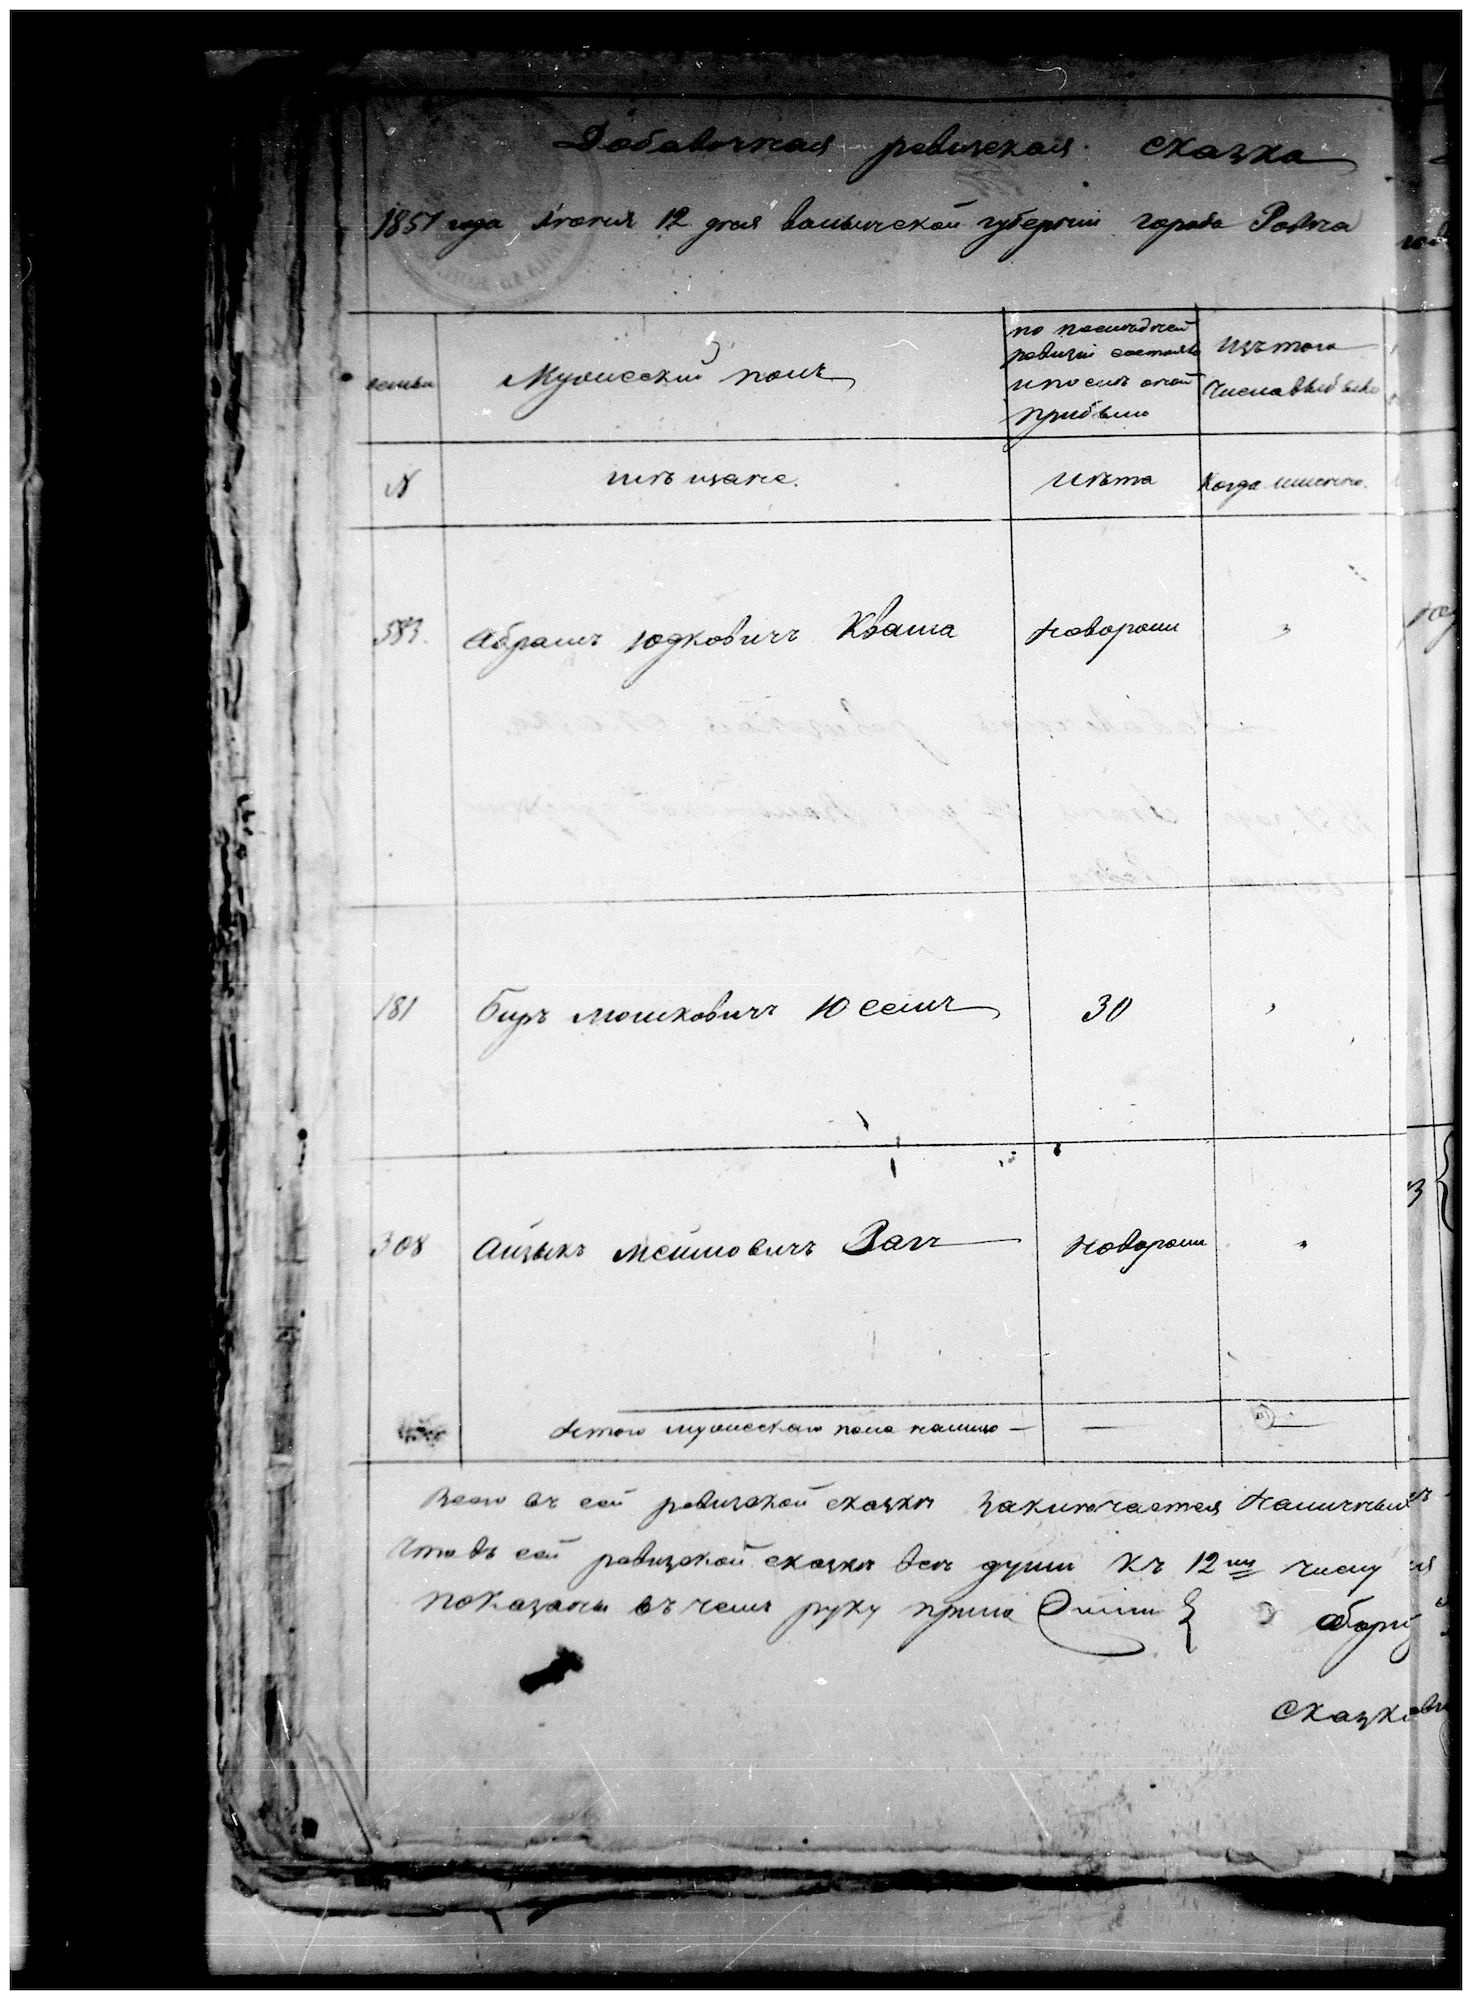 Добавочная ревизская сказка
1851 года Июня 12 дня Волынской губернии города Ровна
семьи
Мужеский полъ
по последней
ревизии состояло
и после оной
прибыло
изъ того
числа выбыло
№
мѣщане.
лѣта
Когда именно.
583.
Абрамъ Юдковичъ Кваша
новорож
181
Беръ Мошковичъ Юсемъ
30
308
Айзыкъ Меймовичъ Ваг
новорож
Итого мужескаго пола налицо —
Всего въ сей ревизской сказки заключается наличных
Что въ сей ревизской сказки все души къ 12му числу
показаны въ чемъ руку прило
Сказк